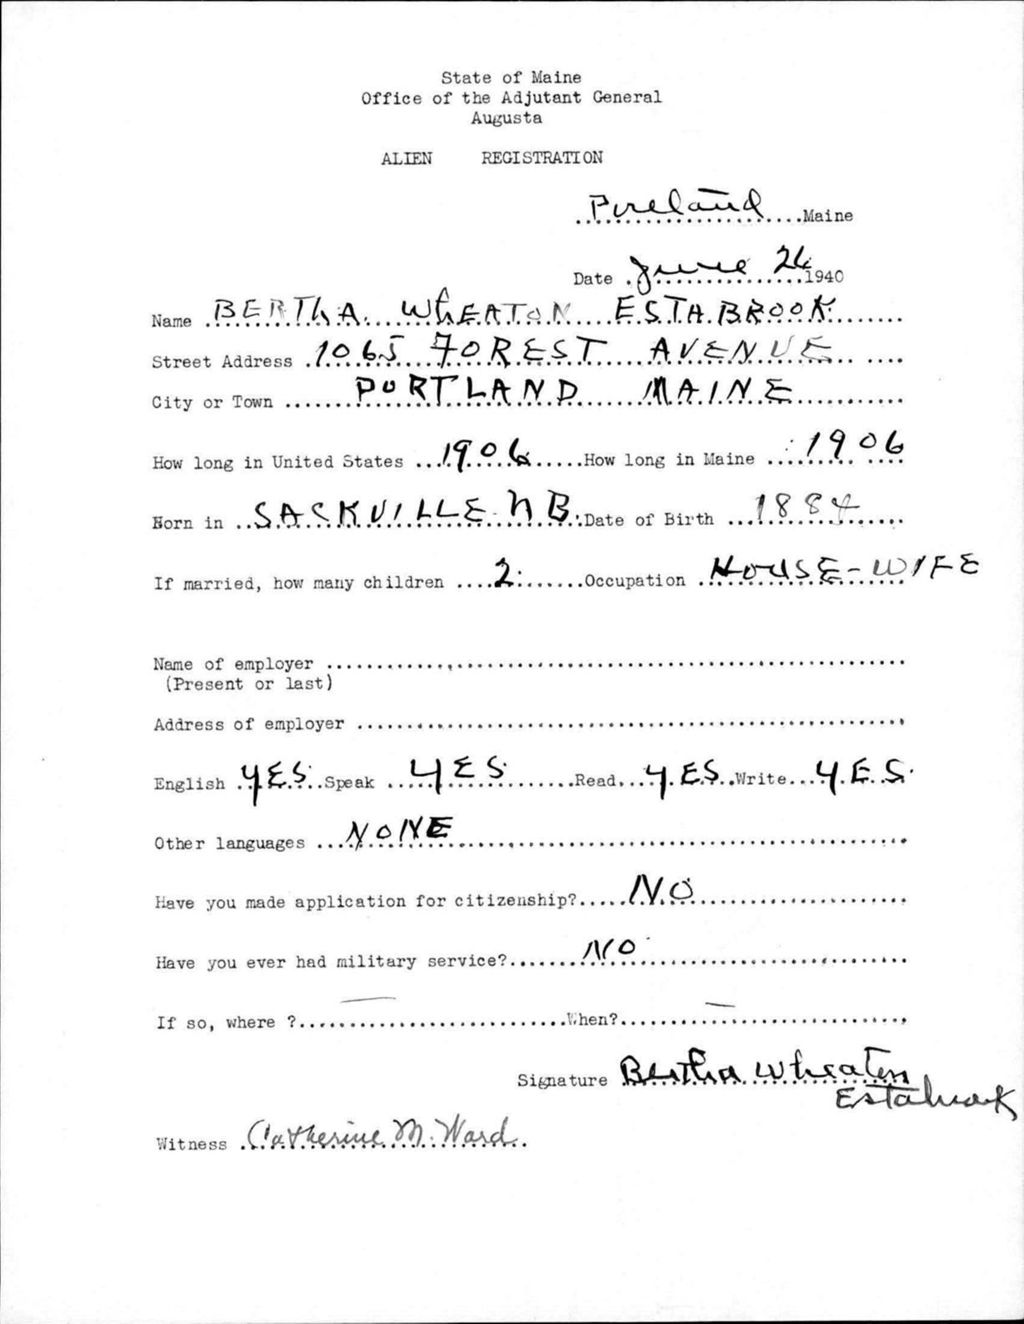 State of Maine
Office of the Adjutant General
Augusta
ALIEN REGISTRATION
Portland Maine
Date June 26 1940
Name BERTHA WHEATON ESTABROOK
Street Address 1065 FOREST AVENUE
City or Town PORTLAND MAINE
How long in United States 1906 How long in Maine 1906
Born in SACKVILLE N B. Date of Birth 1884
If married, how many children 2 Occupation HOUSE-WIFE
Name of employer
(Present or last)
Address of employer
English YES Speak YES Read YES Write YES
Other languages NONE
Have you made application for citizenship? NO
Have you ever had military service? NO
If so, where ? — When? —
Signature Bertha Wheaton
Estabrook
Witness Catherine M. Ward